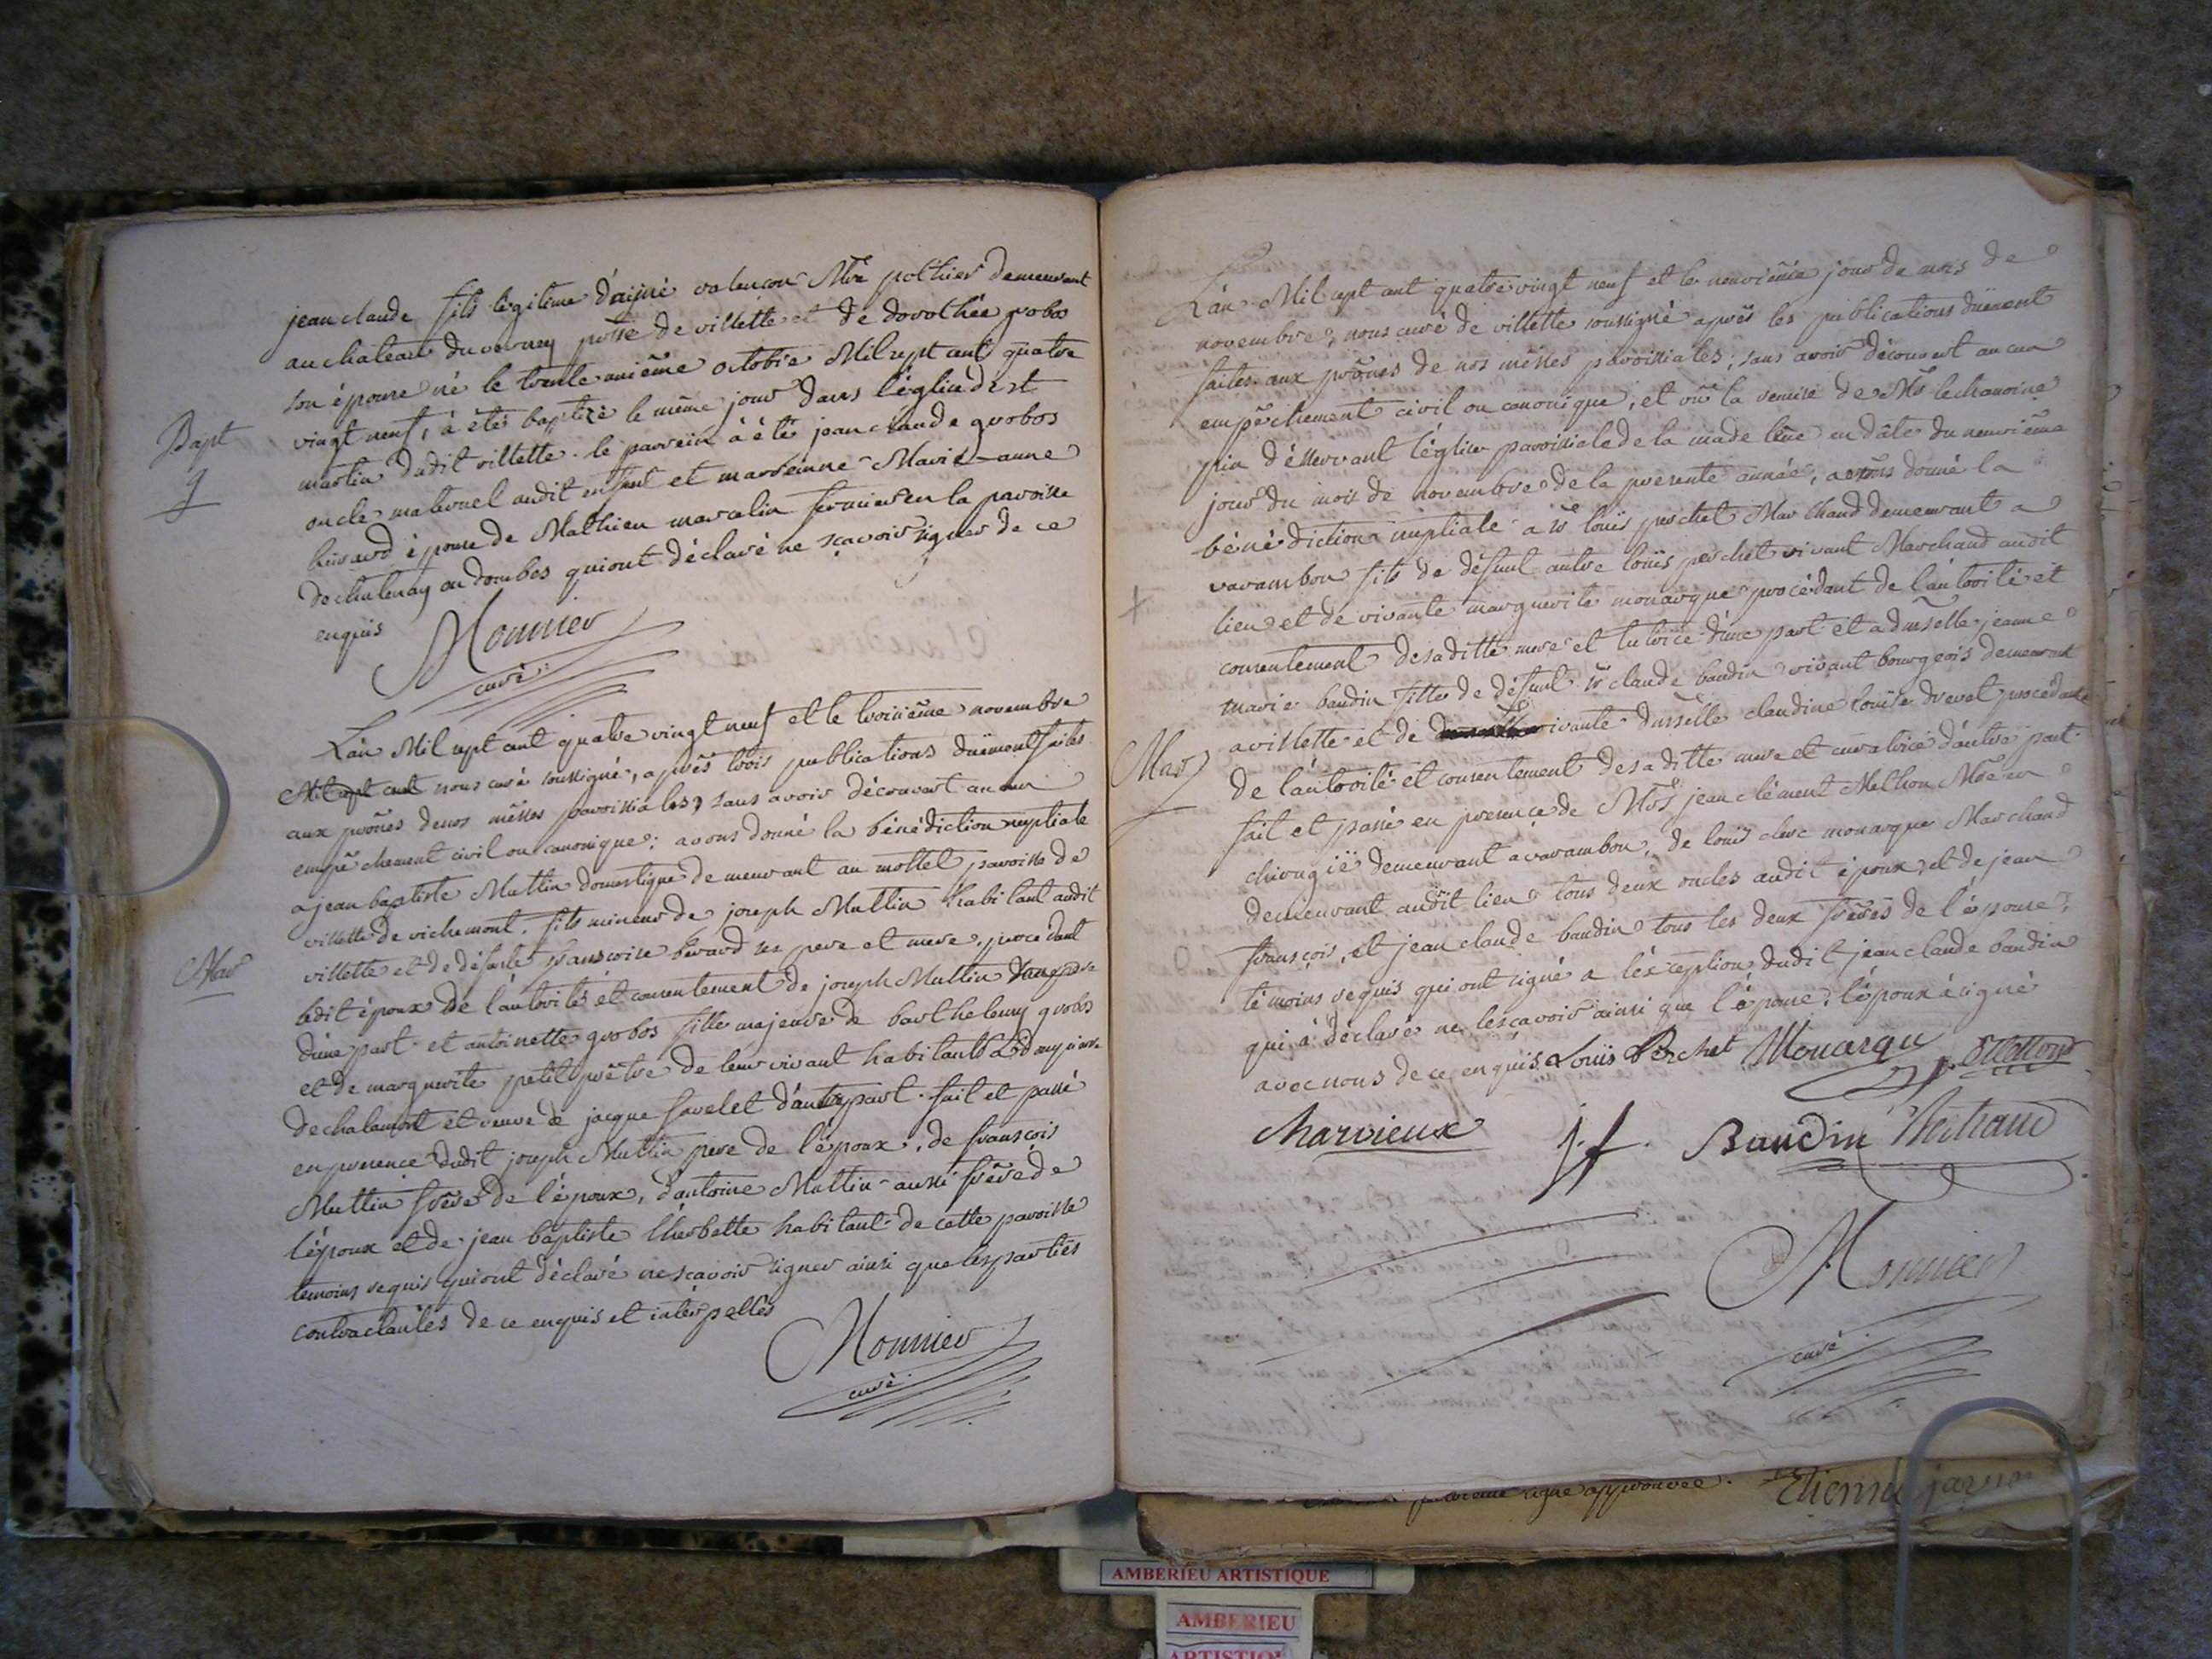 jean claude fils légitime d'aimé valençon Mtre pothier demeurant
au château du verney psse de villette et de dorothée grobos
son épouse né le trente unième octobre Mil sept cent quatre
vingt neuf, à été baptizé le même jour dans l'église de st
Bapt
martin dudit villette. le parrein à été jean claude grobos
oncle maternel audit enfant et marreinne Marie anne
épouse de Mathieu marcelin fermier en la paroisse
de chatenay en dombes qui ont déclaré ne sçavoir signer de ce
enquis
Monnier
curé
L'an Mil sept cent quatre vingt neuf et le troisième novembre
Mil sept cent nous curé soussigné, après trois publications düement faites
aux prônes de nos mêsses paroissiales, sans avoir découvert aucun
empêchement civil ou canonique; avons donné la bénédiction nuptiale
a jean baptiste Muttin domestique demeurant au mottet paroisse de
villette de richemont, fils mineur de joseph Muttin habitant audit
Mar
villette et de défunte françoise bérard ses pere et mere, procédant
ledit époux de l'autorité et consentement de joseph Muttin son pere
d'une part et antoinette grobos fille majeure de barthelemy grobos
et de marguerite petit prêtre de leur vivant habitants
de chalamont et veuve de jacque favelet d'autre part. fait et passé
en présence dudit joseph Muttin pere de l'époux, de françois
Muttin frère de l'époux, d'antoine Muttin aussi frère de
l'époux et de jean baptiste l'herbette habitant de cette paroisse
temoins requis qui ont déclaré ne sçavoir signer ainsi que les parties
contractantes de ce enquis et interpellés
Monnier
curé
L'an Mil sept cent quatre vingt neuf et le neuvième jour de mois de
novembre, nous curé de villette soussigné après les publications düement
faites aux prônes de nos mêsses paroissiales, sans avoir découvert aucun
empêchement civil ou canonique, et vû la remise de Mr le chanoine
pin désservant l'église paroissiale de la madeleine en date du neuvième
jour du mois de novembre de la présente année, avons donné la
bénédiction nuptiale a sr louis perchet Marchand demeurant a
varambon fils de défunt autre louis perchet vivant Marchand audit
lieu et de vivante marguerite monarque procédant de l'autorité et
consentement de sa ditte mere et tutrice d'une part et a dmselle jeanne
marie baudin fille de défunt sr claude baudin vivant bourgeois demeurant
Mar
a villette et de vivante dmselle claudine louise drevet procédante
de l'autorité et consentement de sa ditte mere et curatrice d'autre part.
fait et passé en presence de jean clément Methon Mtre en
chirugie demeurant a varambon, de louis clerc monarque Marchand
demeurant audit lieu tous deux oncles audit époux, et de jean
françois, et jean claude baudin tous les deux frères de l'épouse,
témoins requis qui ont signé a l'exception dudit jean claude baudin
qui à déclaré ne le sçavoir ainsi que l'épouse, l'époux à signé
avec nous de ce enquis Louis Perchet Monarque Metton
Charvieux j.f. Baudin
Monnier
curé
ligne approuvée. Etienne
AMBERIEU ARTISTIQUE
AMBERIEU
ARTISTIQUE